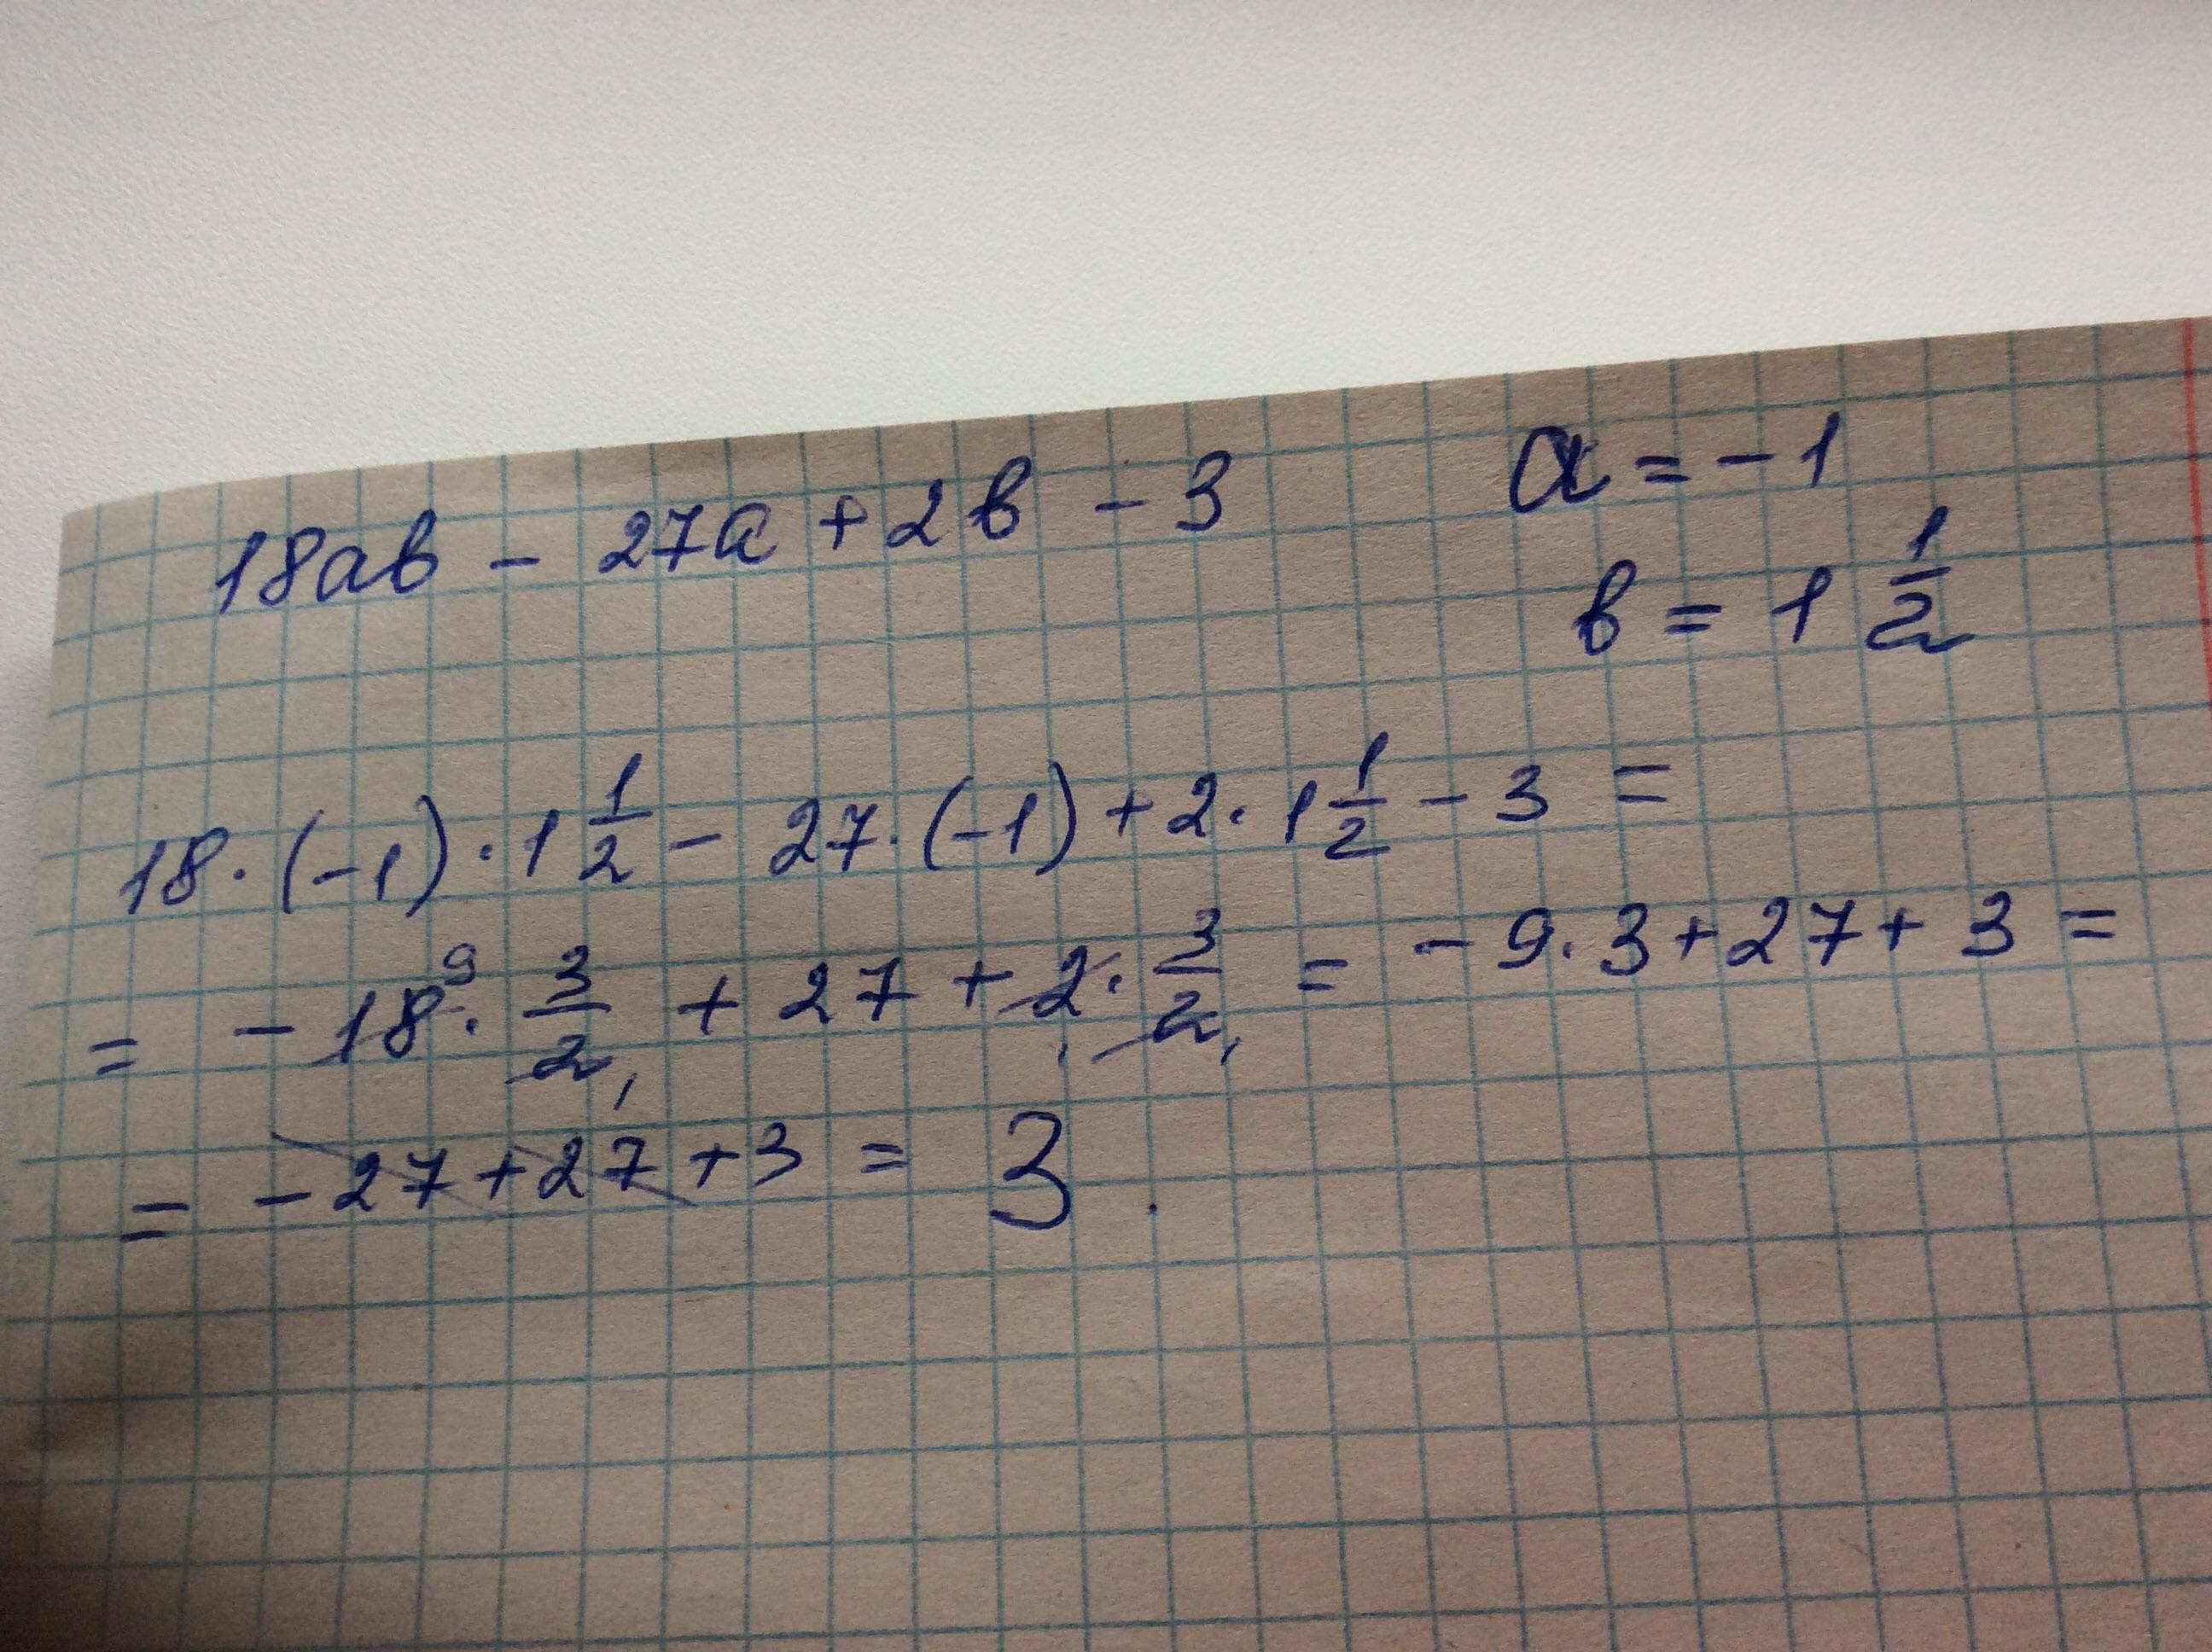 18ав - 27а + 2в - 3 а = -1
в = 1 1/2
18·(-1)·1 1/2 - 27·(-1) + 2·1 1/2 - 3 =
= - 18⁹ · 3/2₁ + 27 + 2₁ · 3/2₁ = - 9·3 + 27 + 3 =
= - 27 + 27 + 3 = 3.